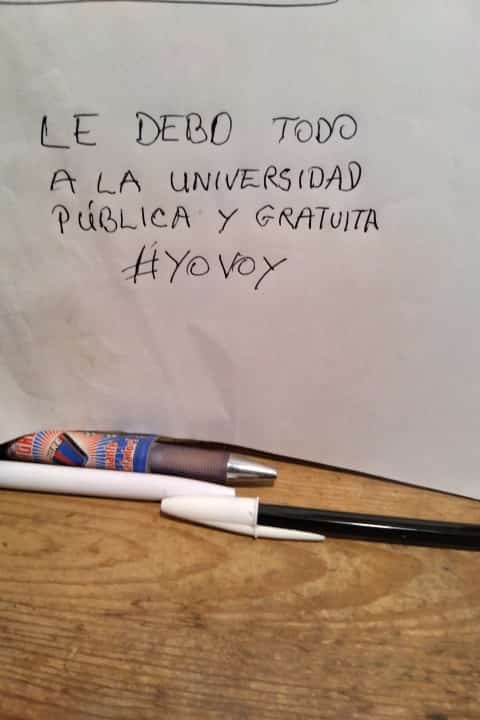 LE DEBO TODO
A LA UNIVERSIDAD
PÚBLICA Y GRATUITA
#YOVOY